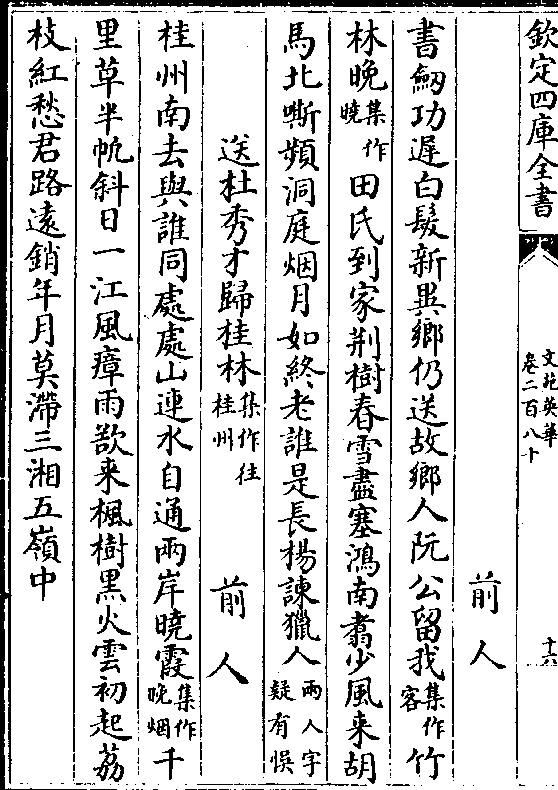 欽定四庫全書
文苑英華
卷二百八十
十六
前人
書劒功遲白髮新異鄉仍送故鄉人阮公留我集作客竹
林晚集作曉田氏到家荆樹春雪盡塞鴻南翥少風来胡
馬北嘶頻洞庭烟月如終老誰是長楊諫獵人兩人字疑有悞
送杜秀才歸桂林集作往桂州
前人
桂州南去與誰同處處山連水自通兩岸曉霞集作晚烟千
里草半帆斜日一江風瘴雨欲来楓樹黒火雲初起荔
枝紅愁君路遠銷年月莫滯三湘五嶺中